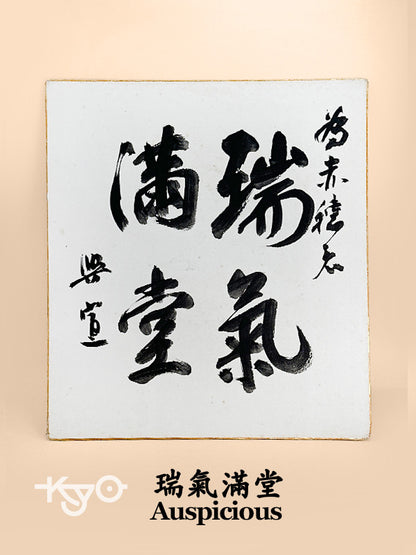 為赤
瑞氣
滿堂
KYO
瑞氣滿堂
Auspicious